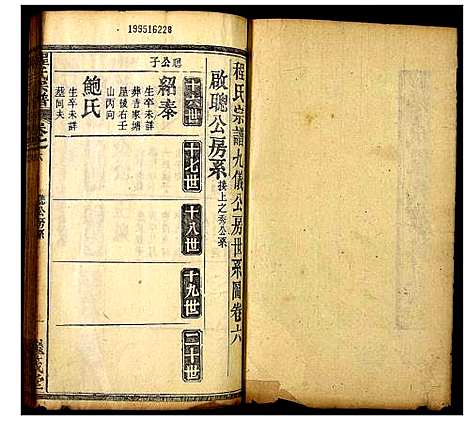 199516228
程氏宗譜九儀公房世系圖卷六
啟聰公房系 接上之秀公系
十六世
十七世
十八世
十九世
二十世
聰公子
紹秦
生卒未詳
葬吉家塘
屋後右壬
山丙向
鮑氏
生卒未詳
葬同夫
程氏宗譜
卷之六
聰公房系